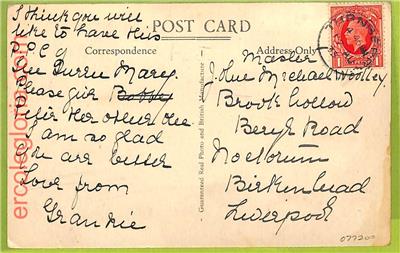 I think you will
like to have this
P.P.C of
the Queen Mary.
Please give Bobby
after her other one
I am so glad
you are better
Love from
Grannie
POST CARD
Correspondence
Address Only
Guaranteed Real Photo and British Manufacture
Master
John Michael Woolley
Brook Hollow
Road
Noctorum
Birkenhead
Liverpool
077200
ercolegloria.com